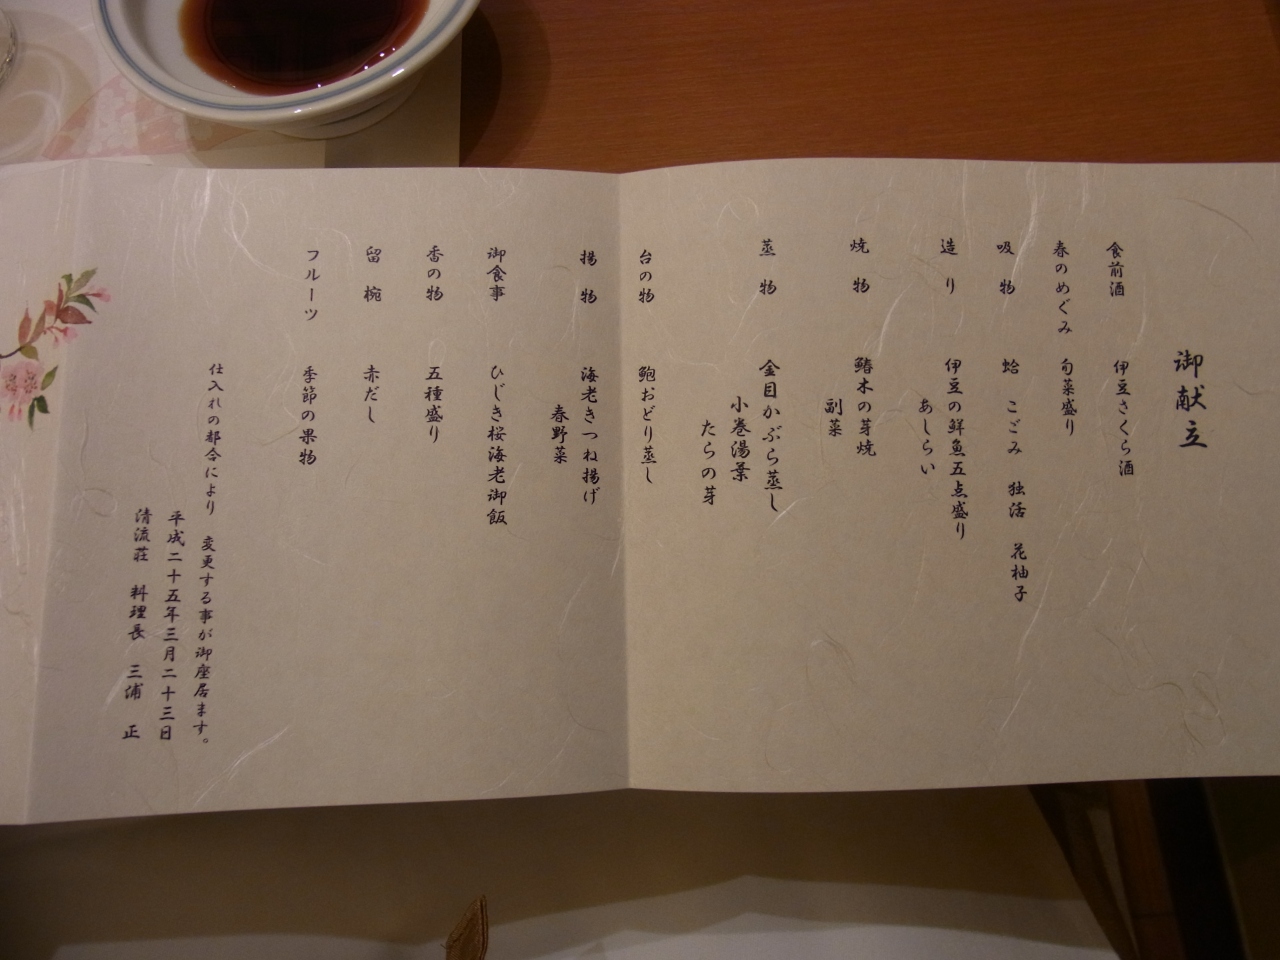 御献立
食前酒 伊豆さくら酒
春のめぐみ 旬菜盛り
吸物 蛤 こごみ 独活 花柚子
造り 伊豆の鮮魚五点盛り
あしらい
焼物 鰆木の芽焼
副菜
蒸物 金目かぶら蒸し
小巻湯葉
たらの芽
台の物 鮑おどり蒸し
揚物 海老きつね揚げ
春野菜
御食事 ひじき桜海老御飯
香の物 五種盛り
留椀 赤だし
フルーツ 季節の果物
仕入れの都合により 変更する事が御座居ます。
平成二十五年三月二十三日
清流荘 料理長 三浦 正